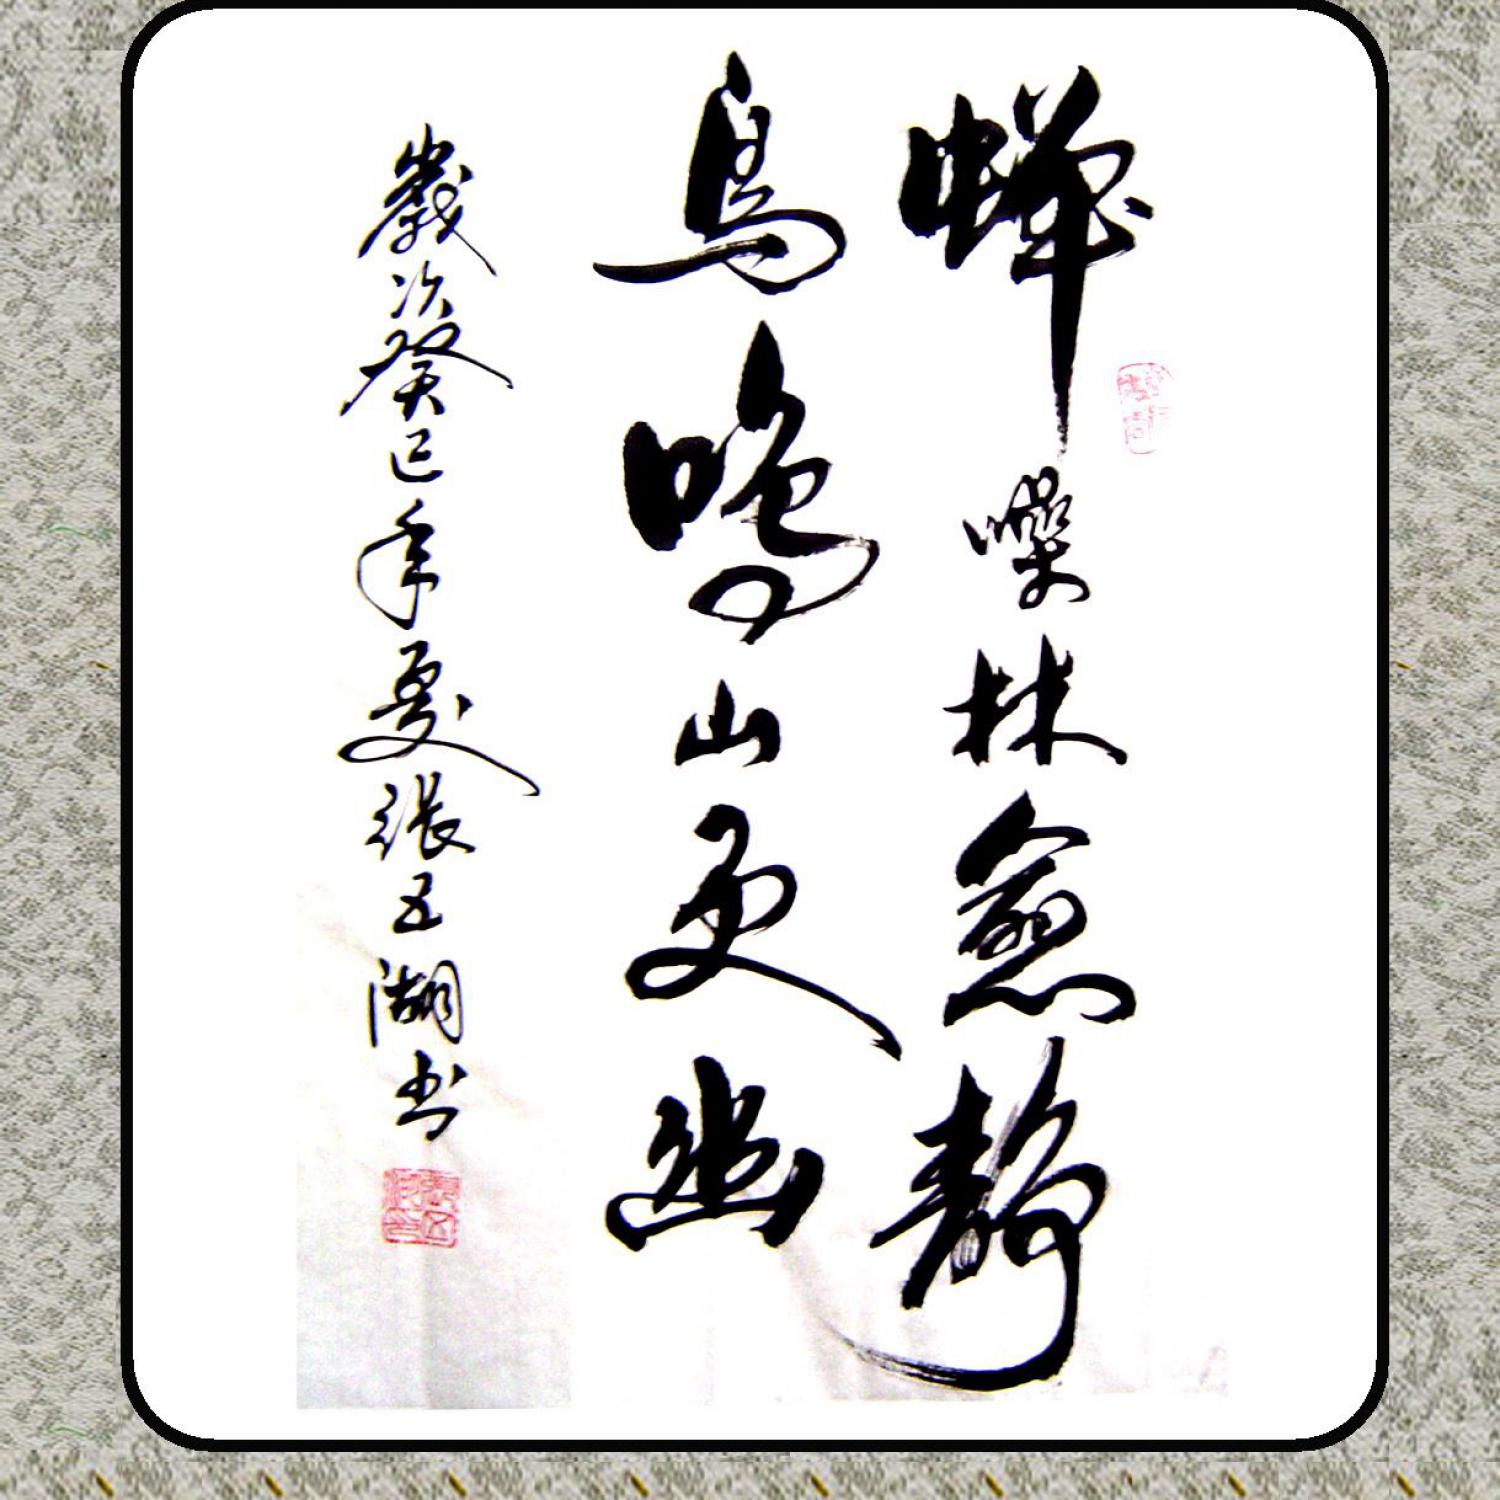 蟬噪林愈靜
鳥鳴山更幽
歲次癸巳年夏張五湖书